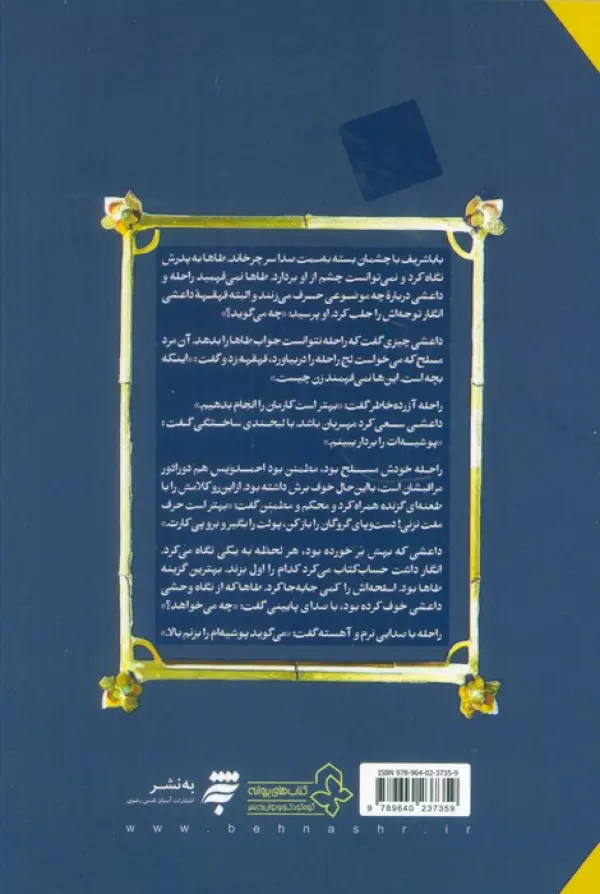 باباشریف با چشمان بسته به‌سمت صدا سر چرخاند. طاها به پدرش
نگاه کرد و نمی‌توانست چشم از او بردارد. طاها نمی‌فهمید راحله و
داعشی دربارهٔ چه موضوعی حرف می‌زنند و البته قهقههٔ داعشی
انگار توجه‌اش را جلب کرد. او پرسید: «چه می‌گوید؟»
داعشی چیزی گفت که راحله نتوانست جواب طاها را بدهد. آن مرد
مسلح که می‌خواست لج راحله را دربیاورد، قهقهه زد و گفت: «اینکه
بچه است. این‌ها نمی‌فهمند زن چیست.»
راحله آزرده‌خاطر گفت: «بهتر است کارمان را انجام بدهیم.»
داعشی سعی کرد مهربان باشد. با لبخندی ساختگی گفت:
«پوشیه‌ات را بردار ببینم.»
راحله خودش مسلح بود، مطمئن بود احمدویس هم دورادور
مراقبشان است، بااین‌حال خوف برش داشته بود. ازاین‌رو کلامش را با
طعنه‌ای گزنده همراه کرد و محکم و مطمئن گفت: «بهتر است حرف
مفت نزنی! دست‌وپای گروگان را باز کن، پولت را بگیر و برو پی کارت.»
داعشی که بهش بر خورده بود، هر لحظه به یکی نگاه می‌کرد.
انگار داشت حساب‌کتاب می‌کرد کدام را اول بزند. بهترین گزینه
طاها بود. اسلحه‌اش را کمی جابه‌جا کرد. طاها که از نگاه وحشی
داعشی خوف کرده بود، با صدای پایینی گفت: «چه می‌خواهد؟»
راحله با صدایی نرم و آهسته گفت: «می‌گوید پوشیه‌ام را بزنم بالا.»
به‌نشر
انتشارات آستان قدس رضوی
کتاب‌های پروانه
گروه کودک و نوجوان به‌نشر
ISBN 978-964-02-3735-9
9 789640 237359
www.behnashr.ir